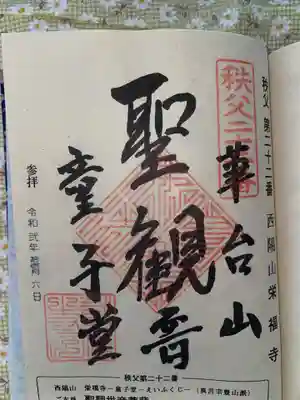 秩父 第二十二番 西陽山 栄福寺
秩父二十二番
華台山
聖観音
童子堂
参拝 令和弐年 六日
秩父第二十二番
西陽山 栄福寺―童子堂―えいふくじ―(真言宗豊山派)
聖観世音菩薩